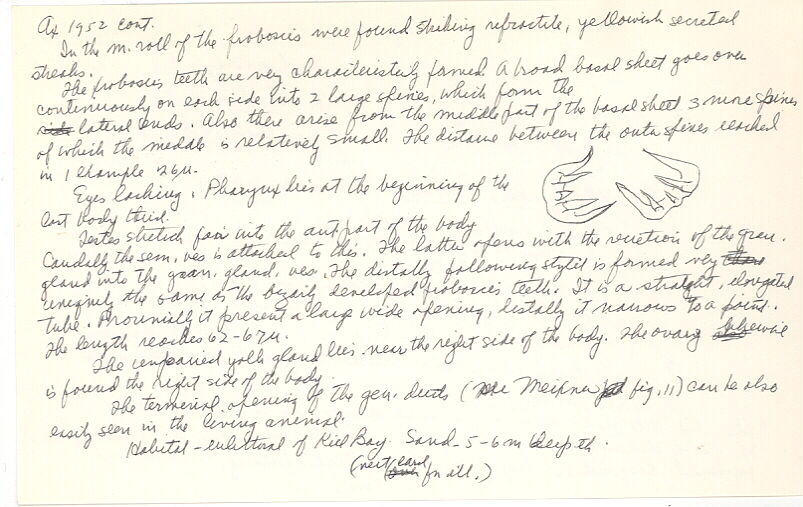 Ax 1952 cont.
In the m. roll of the proboscis were found striking refractile, yellowish secreted
streaks.
The proboscis teeth are very characteristicly formed. A broad basal sheet goes over
continuously on each side into 2 large spines, which form the
lateral ends. Also there arise from the middle part of the basal sheet 3 more spines
of which the middle is relatively small. The distance between the outer spines reached
in 1 example 26µ.
Eyes lacking. Pharynx lies at the beginning of the
last body third.
Testes stretch far into the ant part of the body
Caudally the sem. ves is attached to this. The latter opens with the secretion of the gran.
gland into the gran. gland. ves. The distally following stylet is formed very
uniquely the same as the bizarily developed proboscis teeth. It is a straight, elongated
tube. Proximally it present a large wide opening, distally it narrows to a point.
The length reaches 62-67µ.
The unpaired yolk gland lies near the right side of the body. The ovary likewise
is found the right side of the body.
The terminal opening of the gen. ducts (see Meixner fig. 11) can be also
easily seen in the living animal.
Habitat - eulittoral of Kiel Bay. Sand - 5-6 m depth.
(next card for ill.)